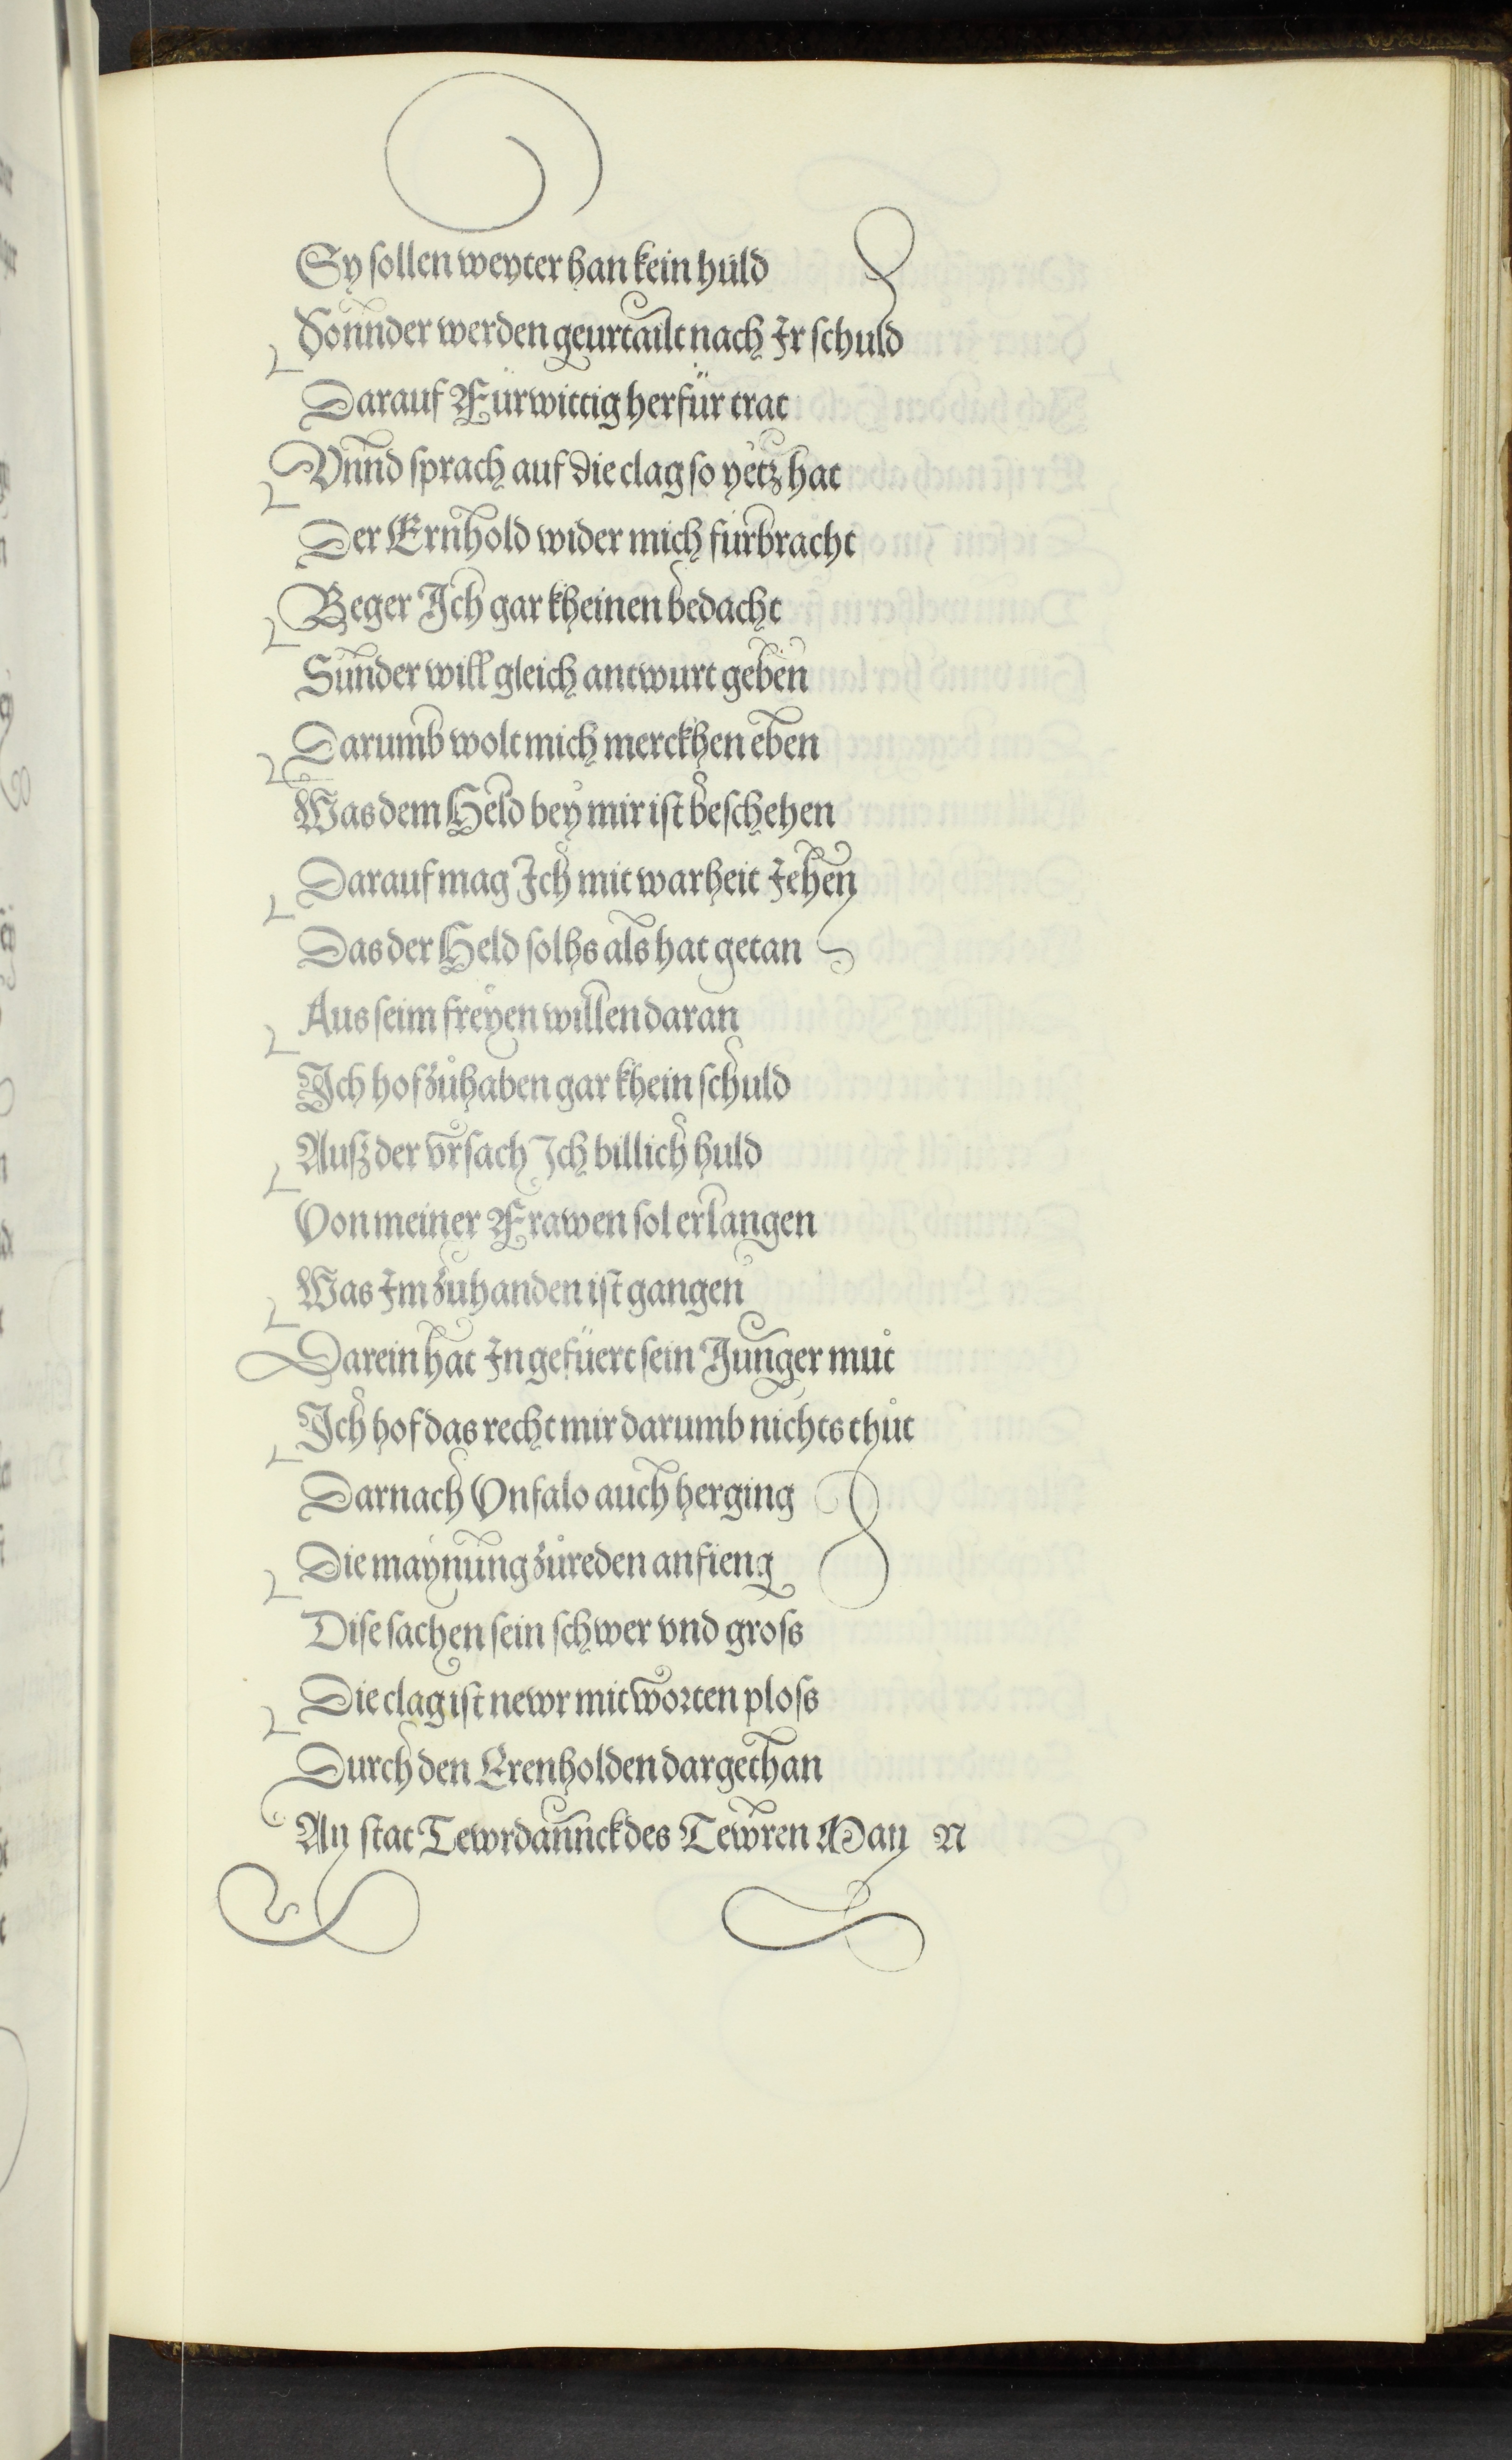 Sy ſollen weyter han kein huld
Sonnder werden geurtailt nach Ir ſchuld
Darauf Fürwittig herfür trat
Vnnd ſprach auf die clag ſo yetz hat
Der Ernhold wider mich fürbracht
Beger Ich gar kheinen bedacht
Sunder will gleich antwurt geben
Darumb wolt mich merckhen eben
Was dem Held bey mir iſt beſchehen
Darauf mag Ich mit warheit Jehen
Das der Held ſolhs als hat getan
Aus ſeim freyen willen daran
Ich hof zůhaben gar khein ſchuld
Auſz der vrſach Ich billich huld
Von meiner Frawen ſol erlangen
Was Im zuhanden iſt gangen
Darein hat In gefüert ſein Junger můt
Ich hof das recht mir darumb nichts thůt
Darnach Vnfalo auch herging
Die maynung zůreden anfieng
Diſe ſachen ſein ſchwer vnd groſs
Die clag iſt newr mit worten ploſs
Durch den Erenholden dargethan
An ſtat Tewrdannck des Tewren Man N